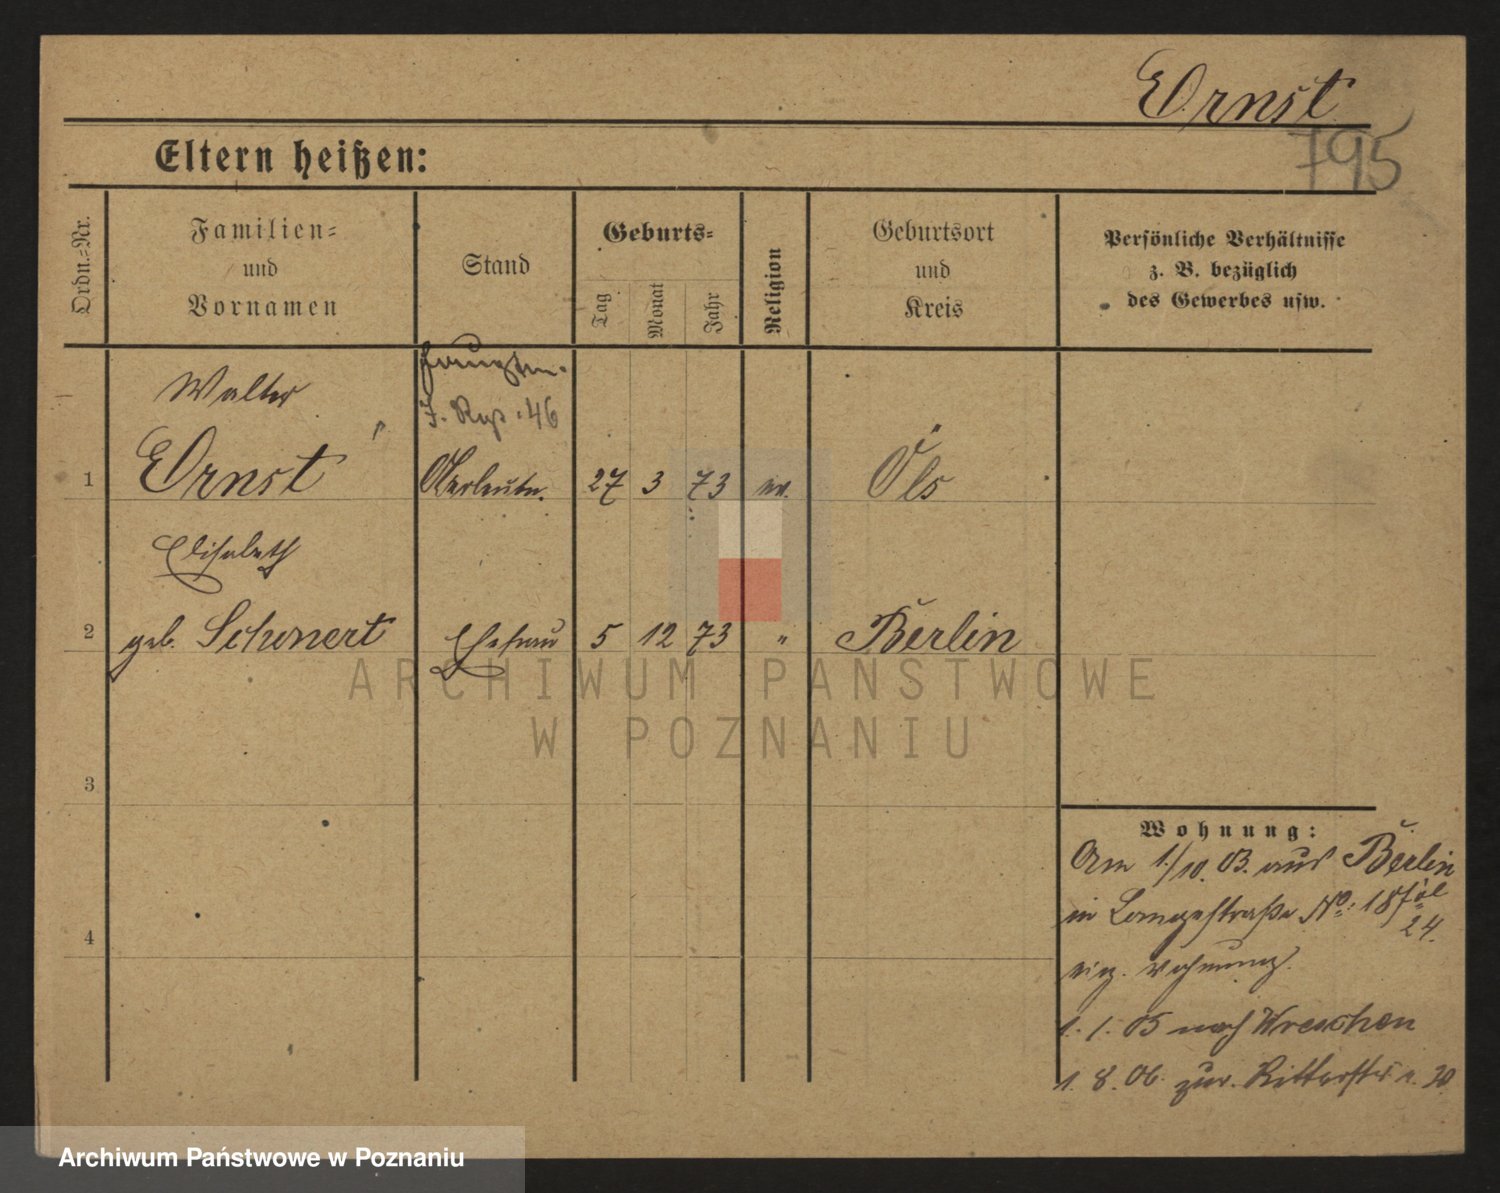 Ernst
795
Eltern heißen:
Ordn.=Nr.
Familien=
und
Vornamen
Stand
Geburts=
Tag
Monat
Jahr
Religion
Geburtsort
und
Kreis
Persönliche Verhältnisse
z. B. bezüglich
des Gewerbes usw.
Hauptm.
J. Reg. 46
Walter
1 Ernst Oberleutn. 27 3 73 ev. Öls
Elisabeth
2 geb. Schonert Ehefrau 5 12 73 " Berlin
3
4
Wohnung:
Am 1./10. 03. aus Berlin
in Langestraße No: 18
24.
eig. Wohnung.
1. 1. 05 nach Wreschen
1. 8. 06. zur. Ritterstr. 20
ARCHIWUM PAŃSTWOWE
W POZNANIU
Archiwum Państwowe w Poznaniu